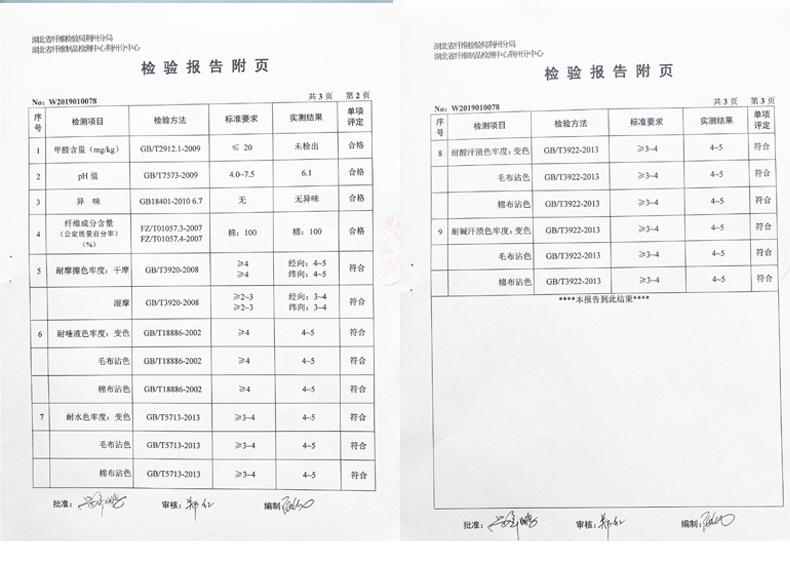 湖北省纤维检验局荆州分局
湖北省纤维制品检测中心荆州分中心
检验报告附页
共 3 页 第 2 页
No: W2019010078
序号 检测项目 检验方法 标准要求 实测结果 单项评定
1 甲醛含量（mg/kg） GB/T2912.1-2009 ≤ 20 未检出 合格
2 pH 值 GB/T7573-2009 4.0~7.5 6.1 合格
3 异 味 GB18401-2010 6.7 无 无异味 合格
4 纤维成分含量（公定质量百分率）（%） FZ/T01057.3-2007 FZ/T01057.4-2007 棉：100 棉：100 合格
5 耐摩擦色牢度：干摩 GB/T3920-2008 ≥4 ≥4 经向：4~5 纬向：4~5 符合
湿摩 GB/T3920-2008 ≥2~3 ≥2~3 经向：3~4 纬向：3~4 符合
6 耐唾液色牢度：变色 GB/T18886-2002 ≥4 4~5 符合
毛布沾色 GB/T18886-2002 ≥4 4~5 符合
棉布沾色 GB/T18886-2002 ≥4 4~5 符合
7 耐水色牢度：变色 GB/T5713-2013 ≥3~4 4~5 符合
毛布沾色 GB/T5713-2013 ≥3~4 4~5 符合
棉布沾色 GB/T5713-2013 ≥3~4 4~5 符合
批准： 审核： 编制：
湖北省纤维检验局荆州分局
湖北省纤维制品检测中心荆州分中心
检验报告附页
共 3 页 第 3 页
No: W2019010078
序号 检测项目 检验方法 标准要求 实测结果 单项评定
8 耐酸汗渍色牢度：变色 GB/T3922-2013 ≥3~4 4~5 符合
毛布沾色 GB/T3922-2013 ≥3~4 4~5 符合
棉布沾色 GB/T3922-2013 ≥3~4 4~5 符合
9 耐碱汗渍色牢度：变色 GB/T3922-2013 ≥3~4 4~5 符合
毛布沾色 GB/T3922-2013 ≥3~4 4~5 符合
棉布沾色 GB/T3922-2013 ≥3~4 4~5 符合
****本报告到此结束****
批准： 审核： 编制：